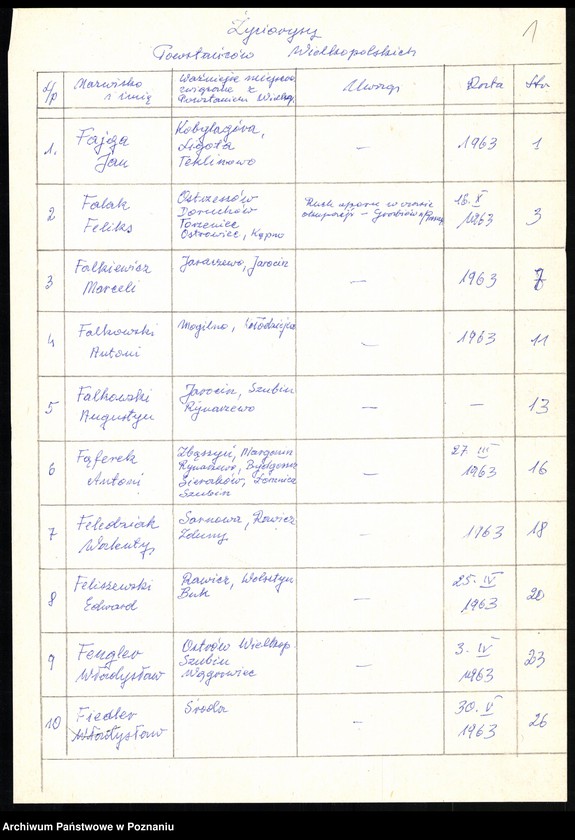 Życiorysy
1
Powstańców Wielkopolskich
L/p
Nazwisko
i imię
Ważniejsze miejsca
związane z
Powstaniem Wielkop.
Uwagi
Data
Str
1.
Fajga
Jan
Kobylagóra,
Ligota
Teklinowo
—
1963
1
2
Falak
Feliks
Ostrzeszów
Doruchów
Torzeniec
Ostrowiec, Kępno
Ruch oporu w czasie
okupacji – Grodzisk
18. X
1963
3
3
Falkiewicz
Marceli
Jaraczewo, Jarocin
—
1963
7
4
Falkowski
Antoni
Mogilno,
—
1963
11
5
Falkowski
Augustyn
Jarocin, Szubin
Rynarzewo
—
—
13
6
Fąferek
Antoni
Zbąszyń, Margonin
Rynarzewo, Bydgoszcz
Sieraków,
Szubin
—
27 III
1963
16
7
Feledziak
Walenty
Sarnowa, Rawicz
Zduny
—
1963
18
8
Feliszewski
Edward
Rawicz, Wolsztyn
Buk
—
25. IV
1963
20
9
Fengler
Władysław
Ostrów Wielkop.
Szubin
Wągrowiec
—
3. IV
1963
23
10
Fiedler
Władysław
Środa
—
30. V
1963
26
Archiwum Państwowe w Poznaniu